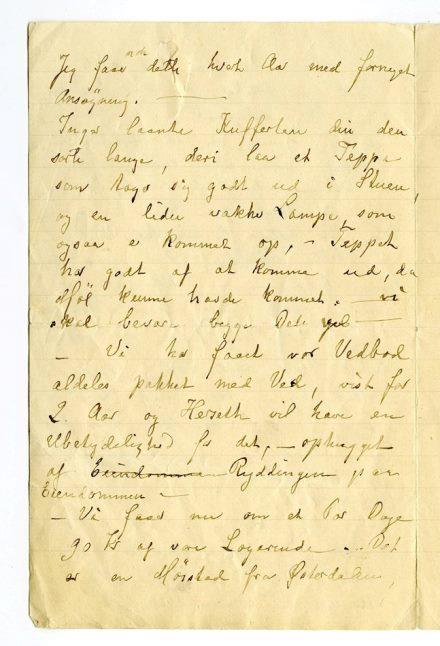 Jeg faar nok dette hvert Aar med fornyet
Ansøgning. —
Inga laante Kufferten din den
sorte lange, deri laa et Teppe
som tog sig godt ud i Stuen,
og en liden vakker Lampe, som
ogsaa er kommet op, – Teppet
har godt af at komme ud, da
Møl kunne havde kommet. – vi
skal bevare begge Dele vel —
– Vi har faaet vor Vedbod
aldeles pakket med Ved, vist for
2 Aar og Herseth vil have en
Ubetydelighed for det, – ophugget
af Eiendomme Ryddingen paa
Eiendommen –
– Vi faar nu om et Par Dage
90 Kr af vore Logerende. . Det
er en Mörstad fra Østerdalen,